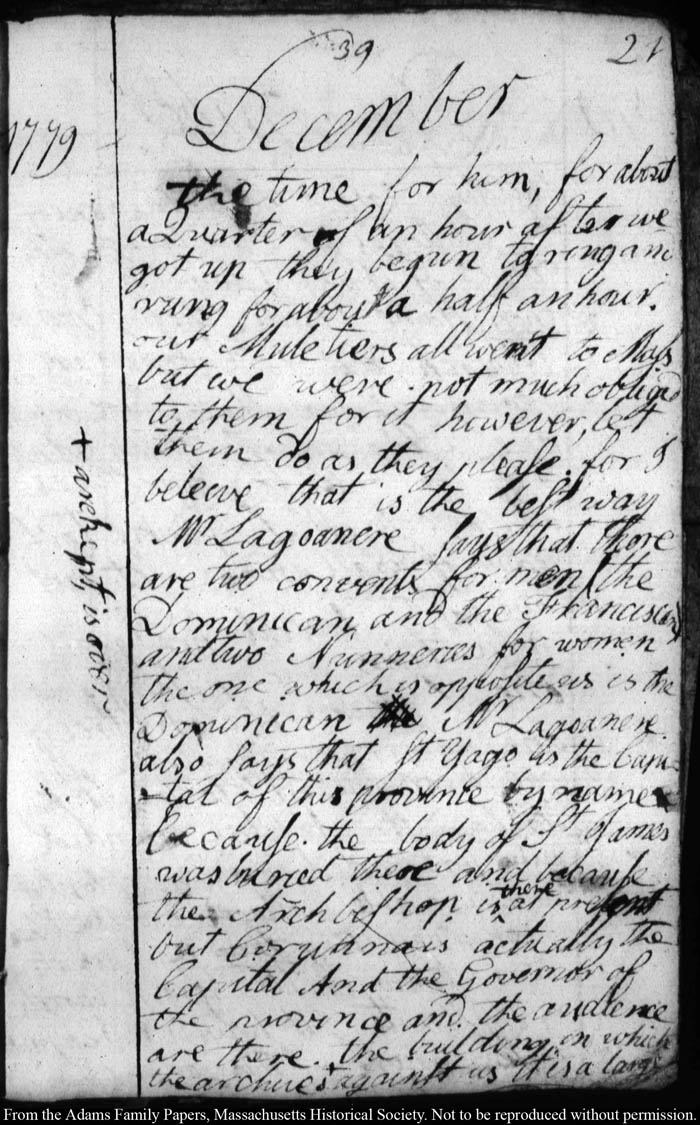 39
21
December
1779
the time for him, for about
a Quarter of an hour after we
got up they begun to ring an
rung for about a half an hour.
our Muletiers all went to Mass
but we were not much obliged
to them for it however, let
them do as they please. for I
beleeve that is the best way
Mr Lagoanere says that there
are two convents for men (the
Dominican and the Franciscan)
and two Nunneries for women
the one which is opposite us is the
Dominican Mr Lagoanere
also says that St Yago is the Capi-
-tal of this province by name
because the body of St James
was buried there and because
the Archbishop is there at present
but Corunna is actually the
Capital And the Governor of
the province and the audience
are there. the building in which
the archives + against us it is a large
+ are kept, is over
From the Adams Family Papers, Massachusetts Historical Society. Not to be reproduced without permission.